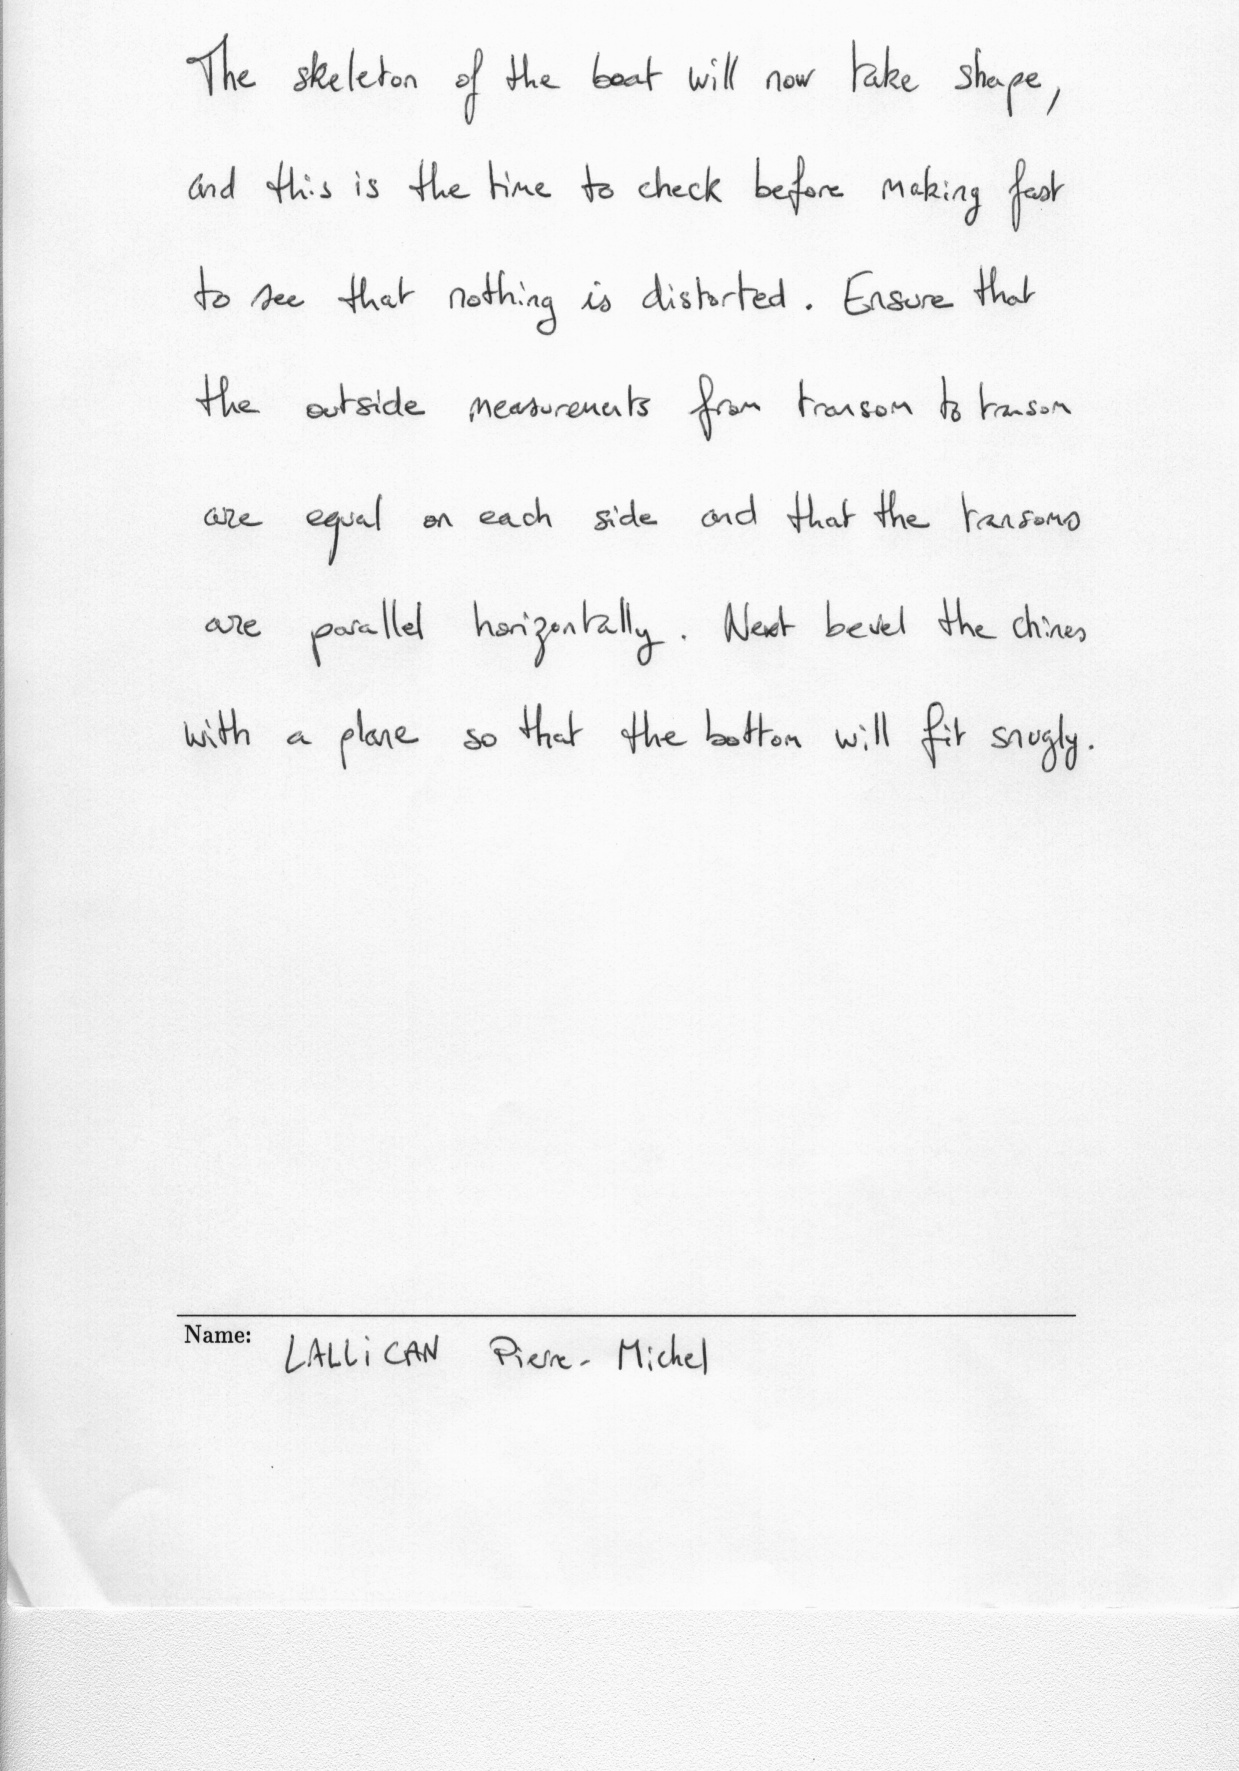 The skeleton of the boat will now take shape,
and this is the time to check before making fast
to see that nothing is distorted. Ensure that
the outside measurements from transom to transom
are equal on each side and that the transoms
are parallel horizontally. Next bevel the chines
with a plane so that the bottom will fit snugly.
Name: LALLiCAN Pierre-Michel